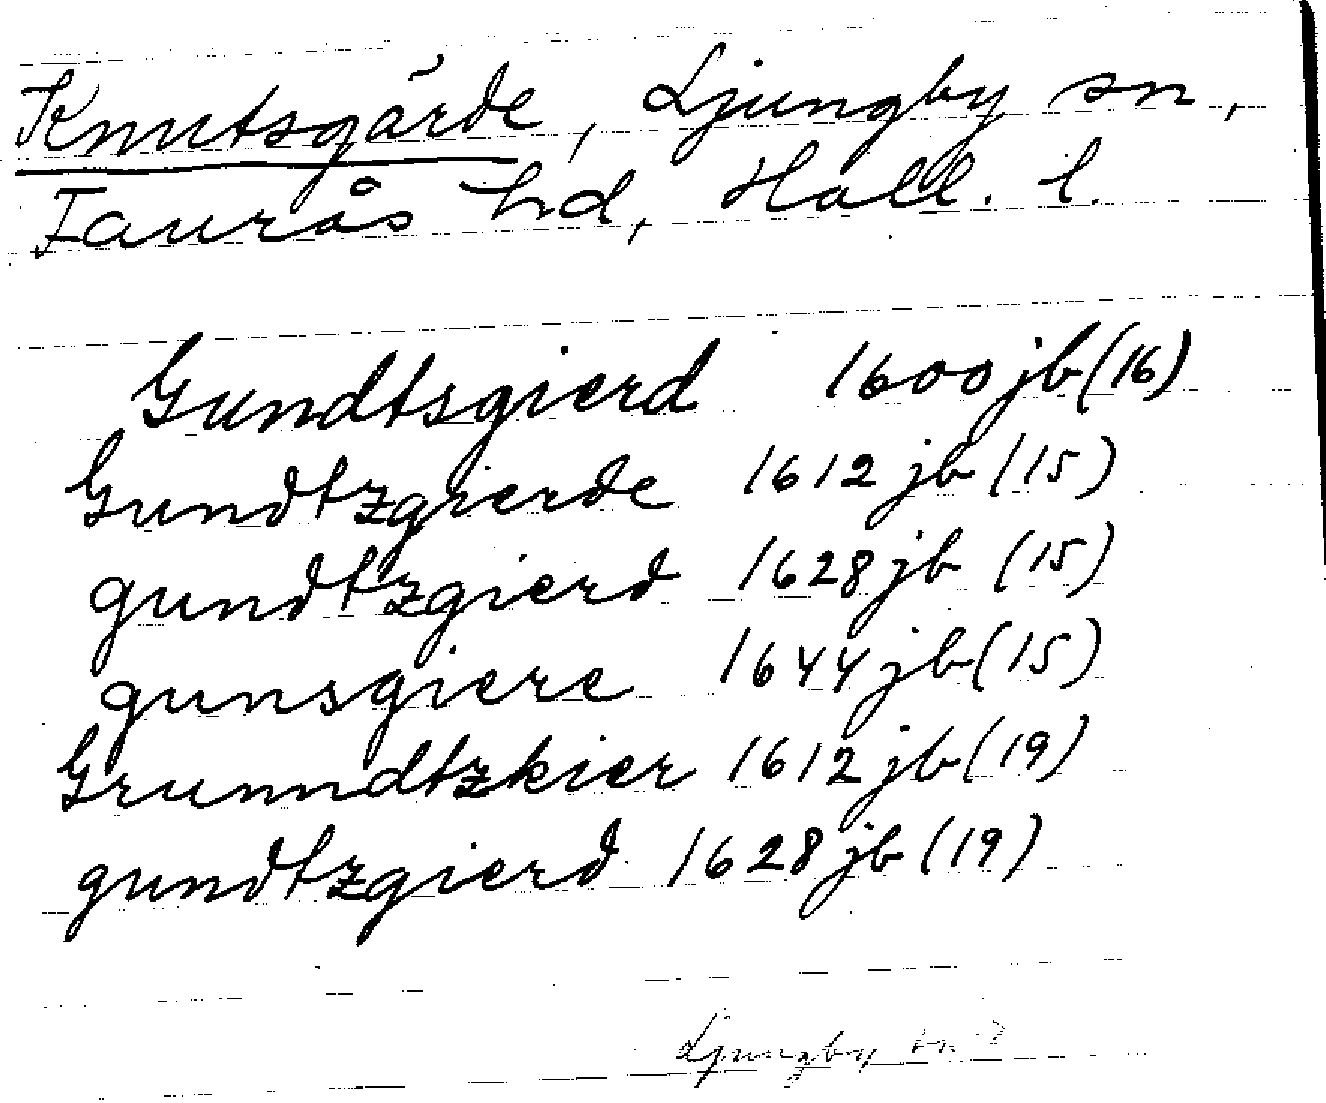 Knutsgärde, Ljungby sn,
Faurås hd, Hall. l.
Gundtsgierd 1600 jb (16)
Gundtzgierde 1612 jb (15)
gundtzgierd 1628 jb (15)
gunsgiere 1644 jb (15)
Grunndtzkier 1612 jb (19)
gundtzgierd 1628 jb (19)
Ljungby sn ?